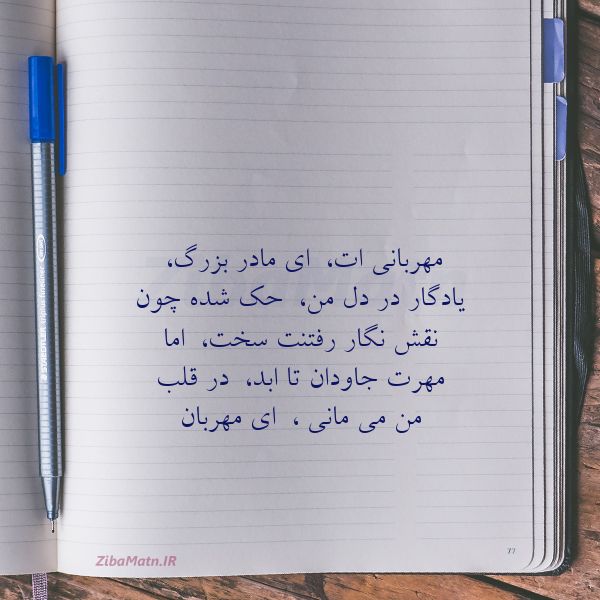 مهربانی ات، ای مادر بزرگ،
یادگار در دل من، حک شده چون
نقش نگار رفتنت سخت، اما
مهرت جاودان تا ابد، در قلب
من می مانی ، ای مهربان
ZibaMatn.IR
77